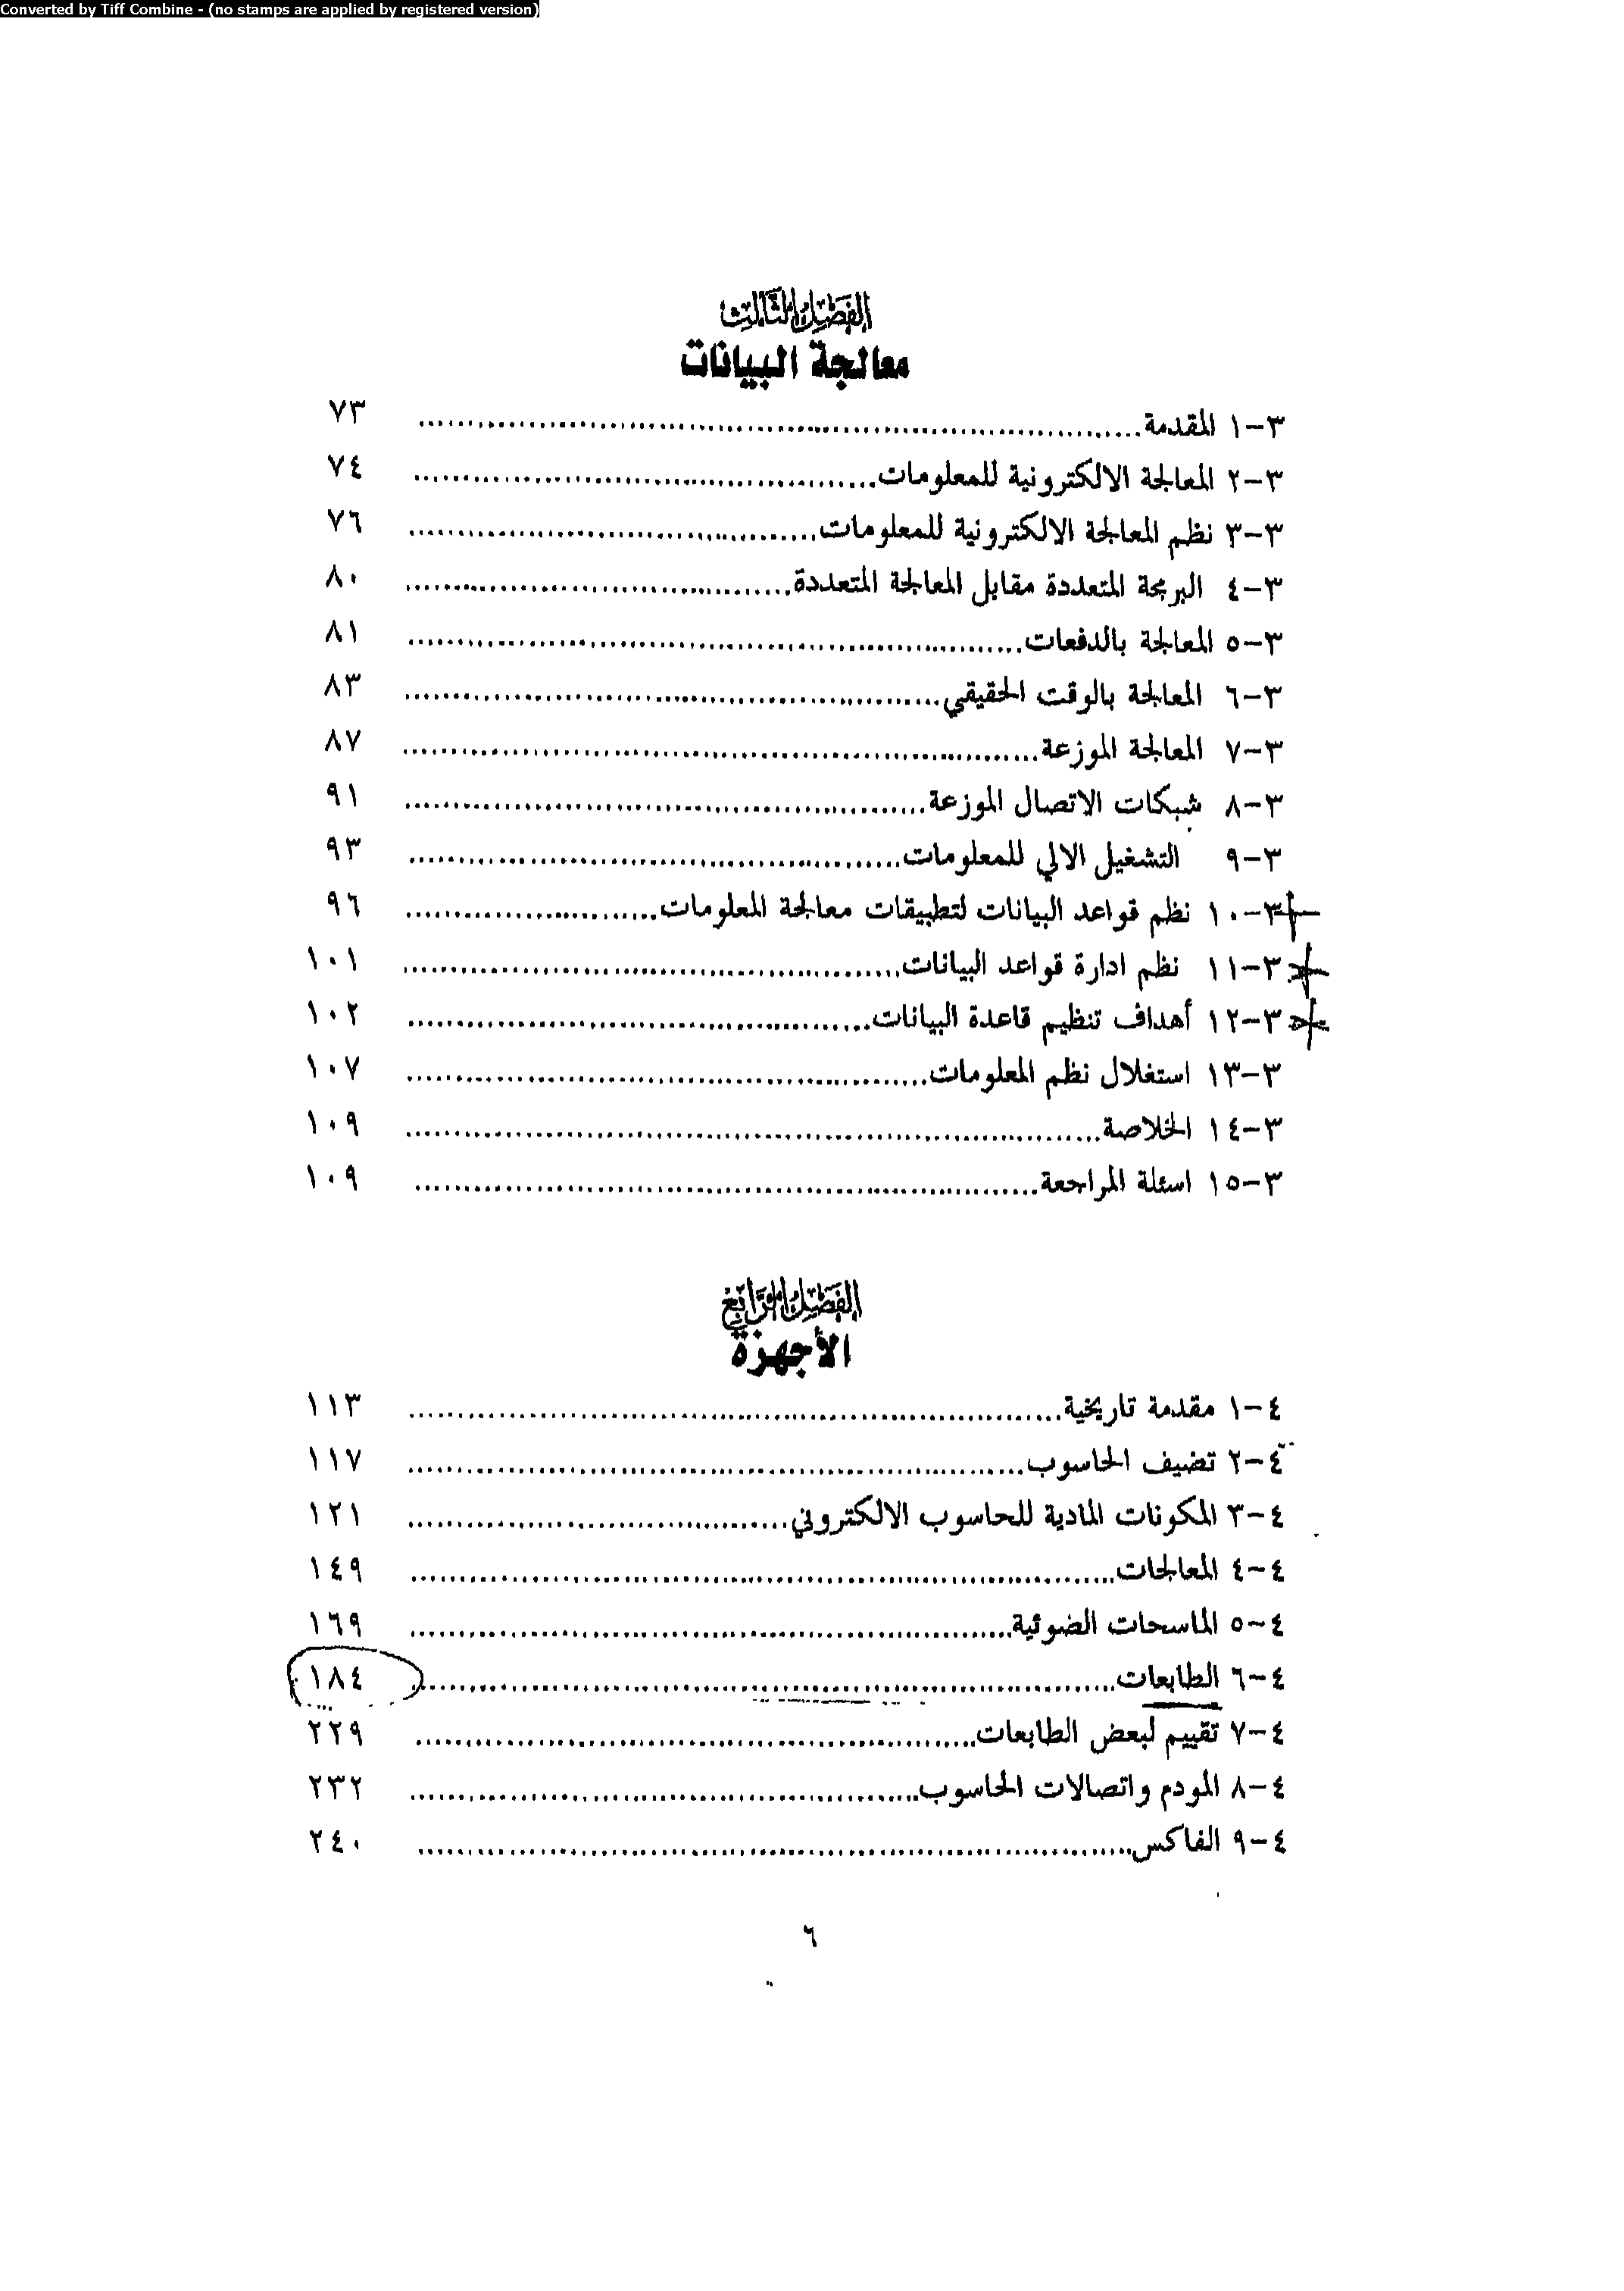 Converted by Tiff Combine - (no stamps are applied by registered version)
الفصل الثالث
معالجة البيانات
٣-١ المقدمة ........ ٧٣
٣-٢ المعالجة الالكترونية للمعلومات ........ ٧٤
٣-٣ نظم المعالجة الالكترونية للمعلومات ........ ٧٦
٣-٤ البرمجة المتعددة مقابل المعالجة المتعددة ........ ٨٠
٣-٥ المعالجة بالدفعات ........ ٨١
٣-٦ المعالجة بالوقت الحقيقي ........ ٨٣
٣-٧ المعالجة الموزعة ........ ٨٧
٣-٨ شبكات الاتصال الموزعة ........ ٩١
٣-٩ التشغيل الالي للمعلومات ........ ٩٣
٣-١٠ نظم قواعد البيانات لتطبيقات معالجة المعلومات ........ ٩٦
٣-١١ نظم ادارة قواعد البيانات ........ ١٠١
٣-١٢ أهداف تنظيم قاعدة البيانات ........ ١٠٢
٣-١٣ استغلال نظم المعلومات ........ ١٠٧
٣-١٤ الخلاصة ........ ١٠٩
٣-١٥ اسئلة المراجعة ........ ١٠٩
الفصل الرابع
الأجهزة
٤-١ مقدمة تاريخية ........ ١١٣
٤-٢ تضيف الحاسوب ........ ١١٧
٤-٣ المكونات المادية للحاسوب الالكتروني ........ ١٢١
٤-٤ المعالجات ........ ١٤٩
٤-٥ الماسحات الضوئية ........ ١٦٩
٤-٦ الطابعات ........ ١٨٤
٤-٧ تقييم لبعض الطابعات ........ ٢٢٩
٤-٨ المودم واتصالات الحاسوب ........ ٢٣٢
٤-٩ الفاكس ........ ٢٤٠
٦